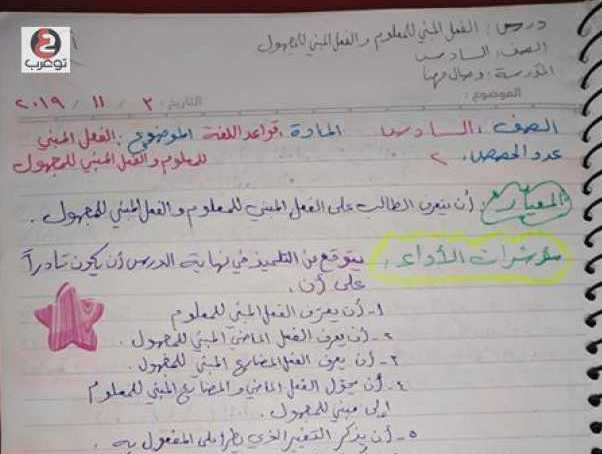 توعرب
درس: الفعل المبني للمعلوم والفعل المبني للمجهول
الصف: السادس
المدرسة: وصال مهنا
الموضوع: التاريخ: ٣ / ١١ / ٢٠١٩
الصف: السادس المادة: قواعد اللغة الموضوع: الفعل المبني
عدد الحصص: ٢ للمعلوم والفعل المبني للمجهول
المعيار: أن يتعرف الطالب على الفعل المبني للمعلوم والفعل المبني للمجهول.
مؤشرات الأداء: يتوقع من التلميذ في نهاية الدرس أن يكون قادراً
على أن:
١- أن يعرف الفعل المبني للمعلوم
٢- أن يعرف الفعل الماضي المبني للمجهول.
٣- أن يعرف الفعل المضارع المبني للمجهول.
٤- أن يحول الفعل الماضي والمضارع المبني للمعلوم
إلى مبني للمجهول.
٥- أن يذكر التغير الذي يطرأ على المفعول به